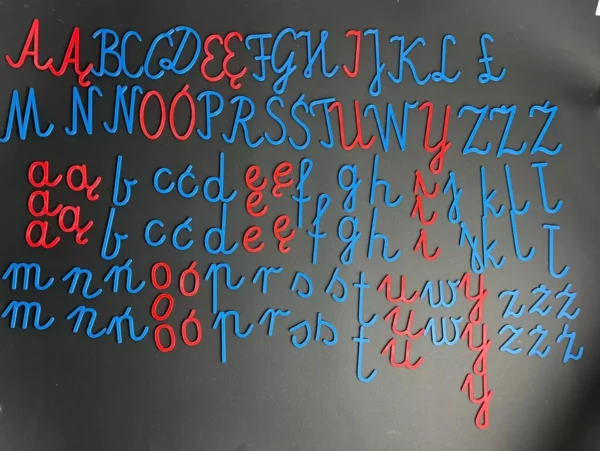 A Ą B C Ć D E Ę F G H I J K L Ł
M N Ń O Ó P R S Ś T U W Y Z Ż Ź
a ą b c ć d e ę f g h i j k l ł
a e i
a ą b c ć d e ę f g h i j k l ł
m n ń o ó p r s ś t u w y z ż ź
o u y
m n ń o ó p r s ś t u w y z ż ź